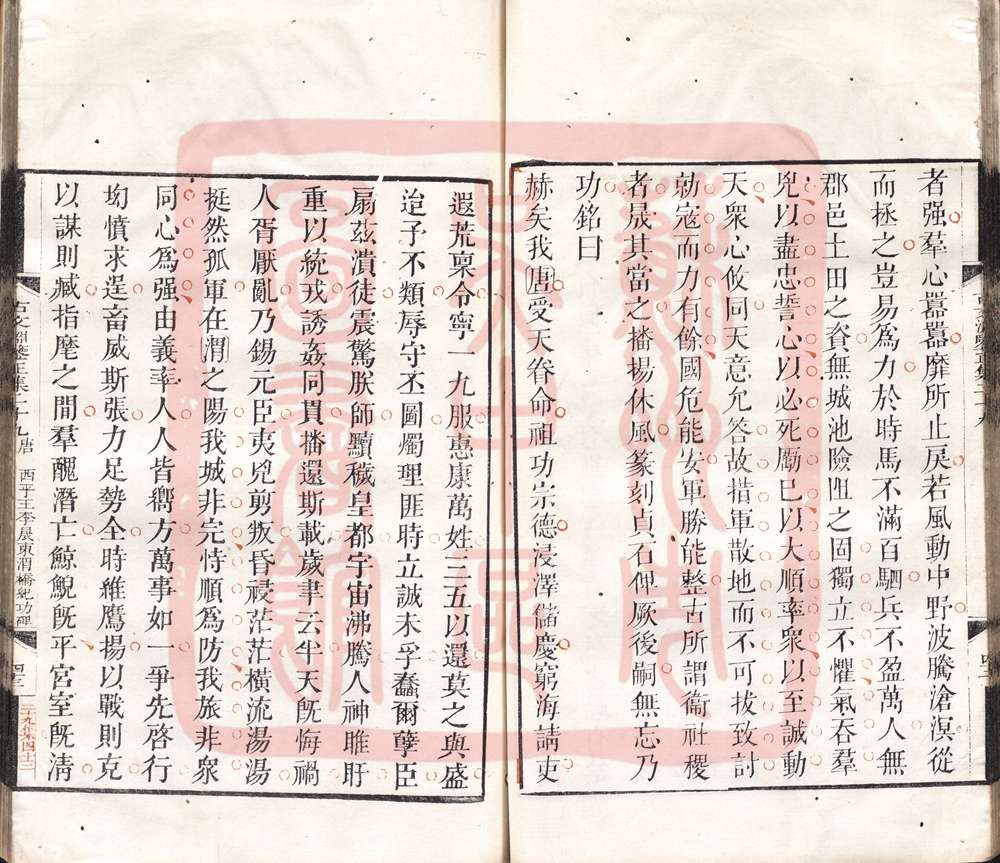 者强羣心囂囂靡所止戾若風動中野波騰滄溟從
而拯之豈易爲力於時馬不滿百駟兵不盈萬人無
郡邑土田之資無城池險阻之固獨立不懼氣吞羣
兇以盡忠誓心以必死勵己以大順率眾以至誠動
天眾心攸同天意允答故措軍散地而不可拔致討
勍寇而力有餘國危能安軍勝能整古所謂衞社稷
者晟其當之播揚休風篆刻貞石俾厥後嗣無忘乃
功銘曰
赫矣我唐受天眷命祖功宗德浸澤儲慶窮海請吏
遐荒稟令寧一九服惠康萬姓三五以還莫之與盛
迨予不類辱守丕圖燭理匪時立誠未孚蠢爾孽臣
扇兹潰徒震驚朕師黷穢皇都宇宙沸騰人神睢盱
重以統戎誘姦同貫播還斯載歲聿云半天旣悔禍
人胥厭亂乃錫元臣夷兇剪叛昏祲茫茫橫流湯湯
挺然孤軍在渭之陽我城非完恃順爲防我旅非衆
同心爲强由義率人人皆嚮方萬事如一爭先啓行
掬憤求逞畜威斯張力足勢全時維鷹揚以戰則克
以謀則臧指麾之間羣醜潛亡鯨鯢旣平宮室旣清
古文淵鑒正集二十九 唐 西平王李晟東渭橋紀功碑
四十三